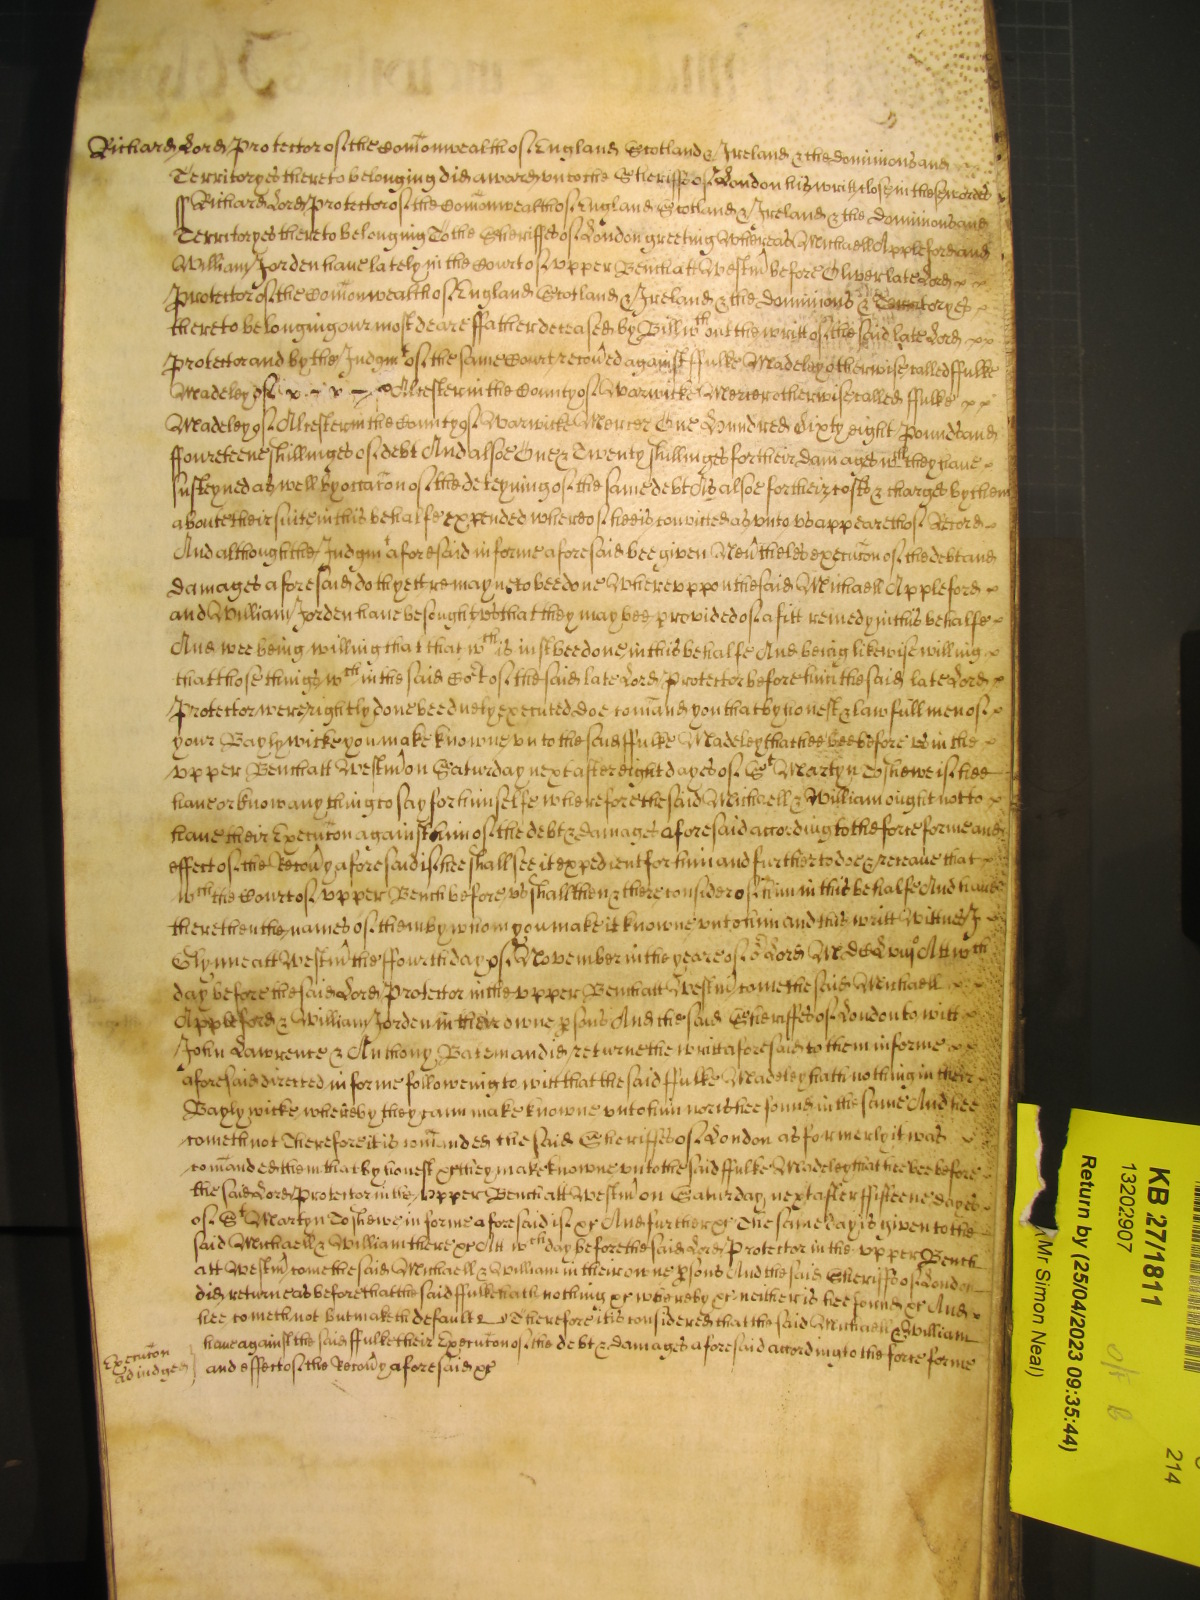 Richard Lord Protector of the Com̄onwealth of England Scotland & Ireland & the dominions and
Territoryes thereto belonging did award unto the Sheriffes of London his writt close in these wordes
ss Richard Lord Protector of the Com̄onwealth of England Scotland & Ireland & the dominions and
Territoryes thereto belonging To the Sheriffes of London greeting Whereas Michaell Appleford and
William Jorden have lately in the Court of upper Bench att Westm̄ before Oliver late Lord
Protector of the Com̄onwealth of England Scotland & Ireland & the dominions & Territoryes
thereto belonging our most deare ffather deceased by Bill wth out the writt of the said late Lord
Protector and by the Judgmt of the same Court recoũed against ffulke Madeley otherwise called ffulke
Madeley of Alcester in the County of Warwicke Mercer otherwise called ffulke
Madeley of Alcester in the County of Warwicke Mercer One hundred Sixty eight Pounds and
ffoureteene shillinges of debt And alsoe One & Twenty shillinges for their damages wch they have
susteyned as well by occac̃on of the deteyning of the same debt As alsoe for their costs & charges by them
aboute their suite in this behalfe expended whereof hee is convicted as unto us appeareth of Record
And although the Judgmt aforesaid in forme aforesaid bee given Neũtheles execuc̃on of the debt and
damages aforesaid doth yett remayne to bee done Whereuppon the said Michaell Appleford
and William Jorden have besought us that they may bee provided of a fitt remedy in this behalfe
And wee being willing that that wch is iust bee done in this behalfe And being likewise willing
that those things wch in the said Cort of the said late Lord Protector before him the said late Lord
Protector were rightly done bee duely executed doe com̄and you that by honest & lawfull men of
your Baylywicke you make knowne unto the said ffulke Madeley that hee bee before us in the
upper Bench att Westm̄ on Saturday next after eight dayes of St Martyn To shewe if hee
have or know any thing to say for himselfe wherefore the said Michaell & William ought not to
have their Execuc̃on against him of the debt & damages aforesaid according to the force forme and
effect of the Recoũy aforesaid if hee shall see it expedient for him and further to doe & receave that
wch the Court of upper Bench before us shall then & there consider of him in this behalfe And have
there then the names of them by whom you make it knowne unto him and this writt Wittnes J
Glynne att Westm̄ the ffourth day of November in the yeare of or Lord MdcLviijo Att wch
day before the said Lord Protector in the upper Bench att Westm̄ come the said Michaell
Appleford & William Jorden in their owne p̱sons And the said Sheriffes of London to witt
John Lawrence & Anthony Bateman did returne the writt aforesaid to them in forme
aforesaid directed in forme followeing to witt that the said ffulke Madeley hath nothing in their
Baylywicke whereby they cann make knowne unto him nor is hee found in the same And hee
cometh not Therefore it is com̄anded the said Sheriffes of London as formerly it was
com̄anded them that by honest &c they make knowne unto the said ffulke Madeley that hee bee before
the said Lord Protector in the Upper Bench att Westm̄ on Saturday next after ffifteene dayes
of St Martyn To shewe in forme aforesaid if &c And further &c The same day is given to the
said Michaell & William there &c Att wch day before the said Lord Protector in the upper Bench
att Westm̄ come the said Michaell & William in their owne p̱sons And the said Sheriffs of London
did returne as before that the said ffulke hath nothing &c whereby &c neither is hee found &c And
hee cometh not but maketh default Therefore it is considered that the said Michaell & William
have against the said ffulke their Execuc̃on of the debt & damages aforesaid according to the force forme
and effect of the Recoũy aforesaid &c
Execuc̃on
adiudged
KB 27/1811
13202907
Return by (25/04/2023 09:35:44)
Mr Simon Neal)
214